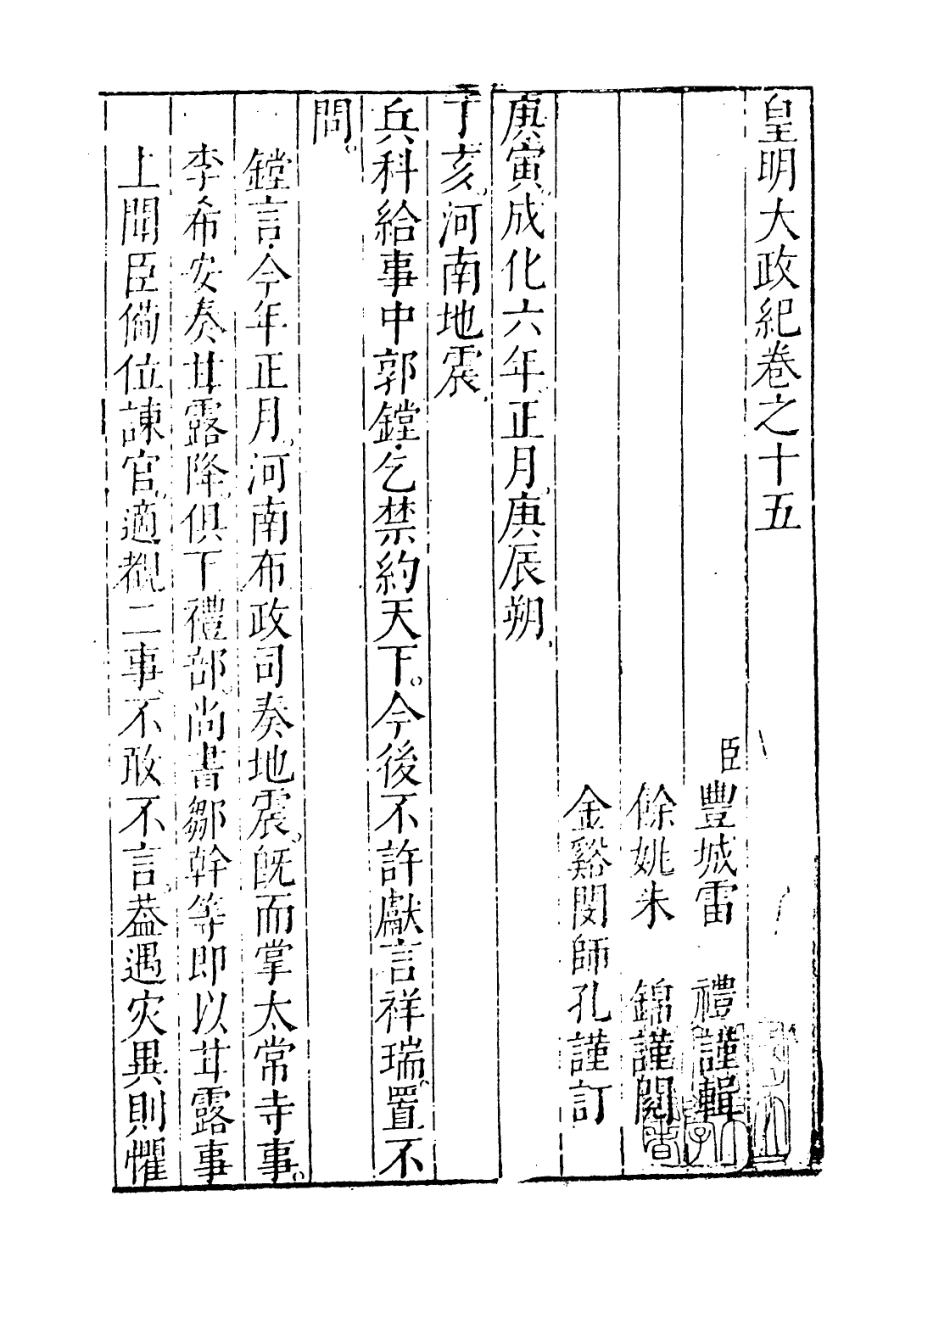 皇明大政紀卷之十五
臣豐城雷　禮謹輯
餘姚朱　錦謹閱
金谿閔師孔謹訂
庚寅成化六年正月庚辰朔
丁亥河南地震
兵科給事中郭鏜乞禁約天下。今後不許獻言祥瑞置不
問。
鏜言今年正月河南布政司奏地震。旣而掌太常寺事。
李希安奏甘露降。俱下禮部。尚書鄒幹等即以甘露事
上聞臣俻位諫官適覩二事不敢不言葢遇灾異則懼